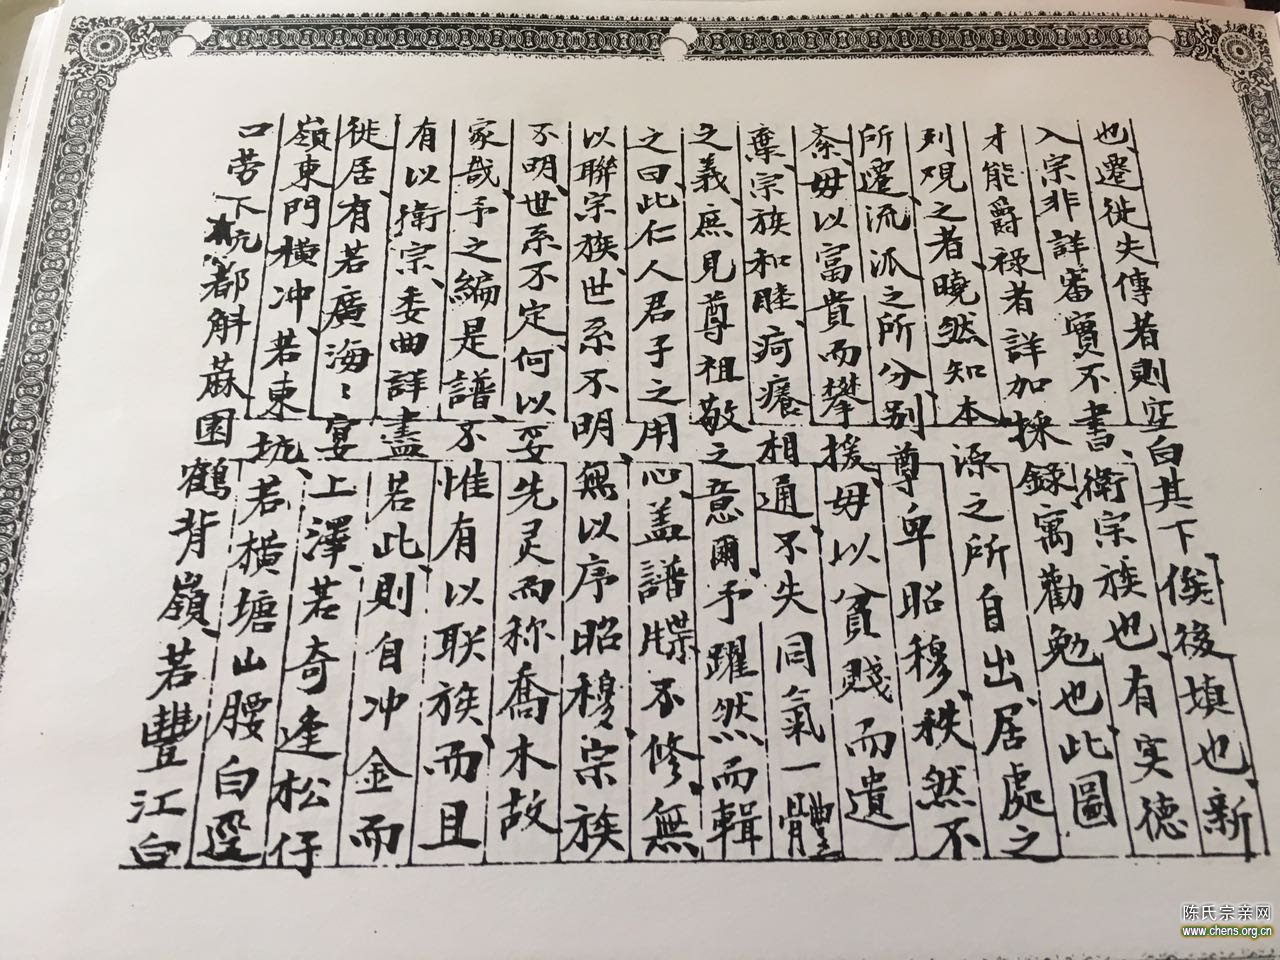 也、遷徙失傳者則空白其下俟後填也、新
入宗非詳審實不書、衛宗族也、有实德
才能爵祿者詳加採錄寓勸勉也此圖
列观之者、曉然知本源之所自出、居處之
所遷、流派之所分、别尊卑昭穆、秩然不
紊、毋以富貴而攀援、毋以貧賤而遺
棄、宗族和睦、疴癢相通、不失同氣一體
之義、庶見尊祖敬之意爾、予躍然而輯
之曰、此仁人君子之用心、盖譜牒不修、無
以聯宗族、世系不明、無以序昭穆、宗族
不明、世系不定、何以妥先灵而称喬木故
家哉、予之編是譜、不惟有以联族、而且
有以衛宗、委曲詳盡若此、則自冲金而
徙居、有若廣海、宴上澤、若奇逢松仔
嶺東門橫冲、若東坑、若橫塘山腰白逕
口劳下坑都斛蔴園鶴背嶺、若豐江白
陈氏宗亲网
www.chens.org.cn